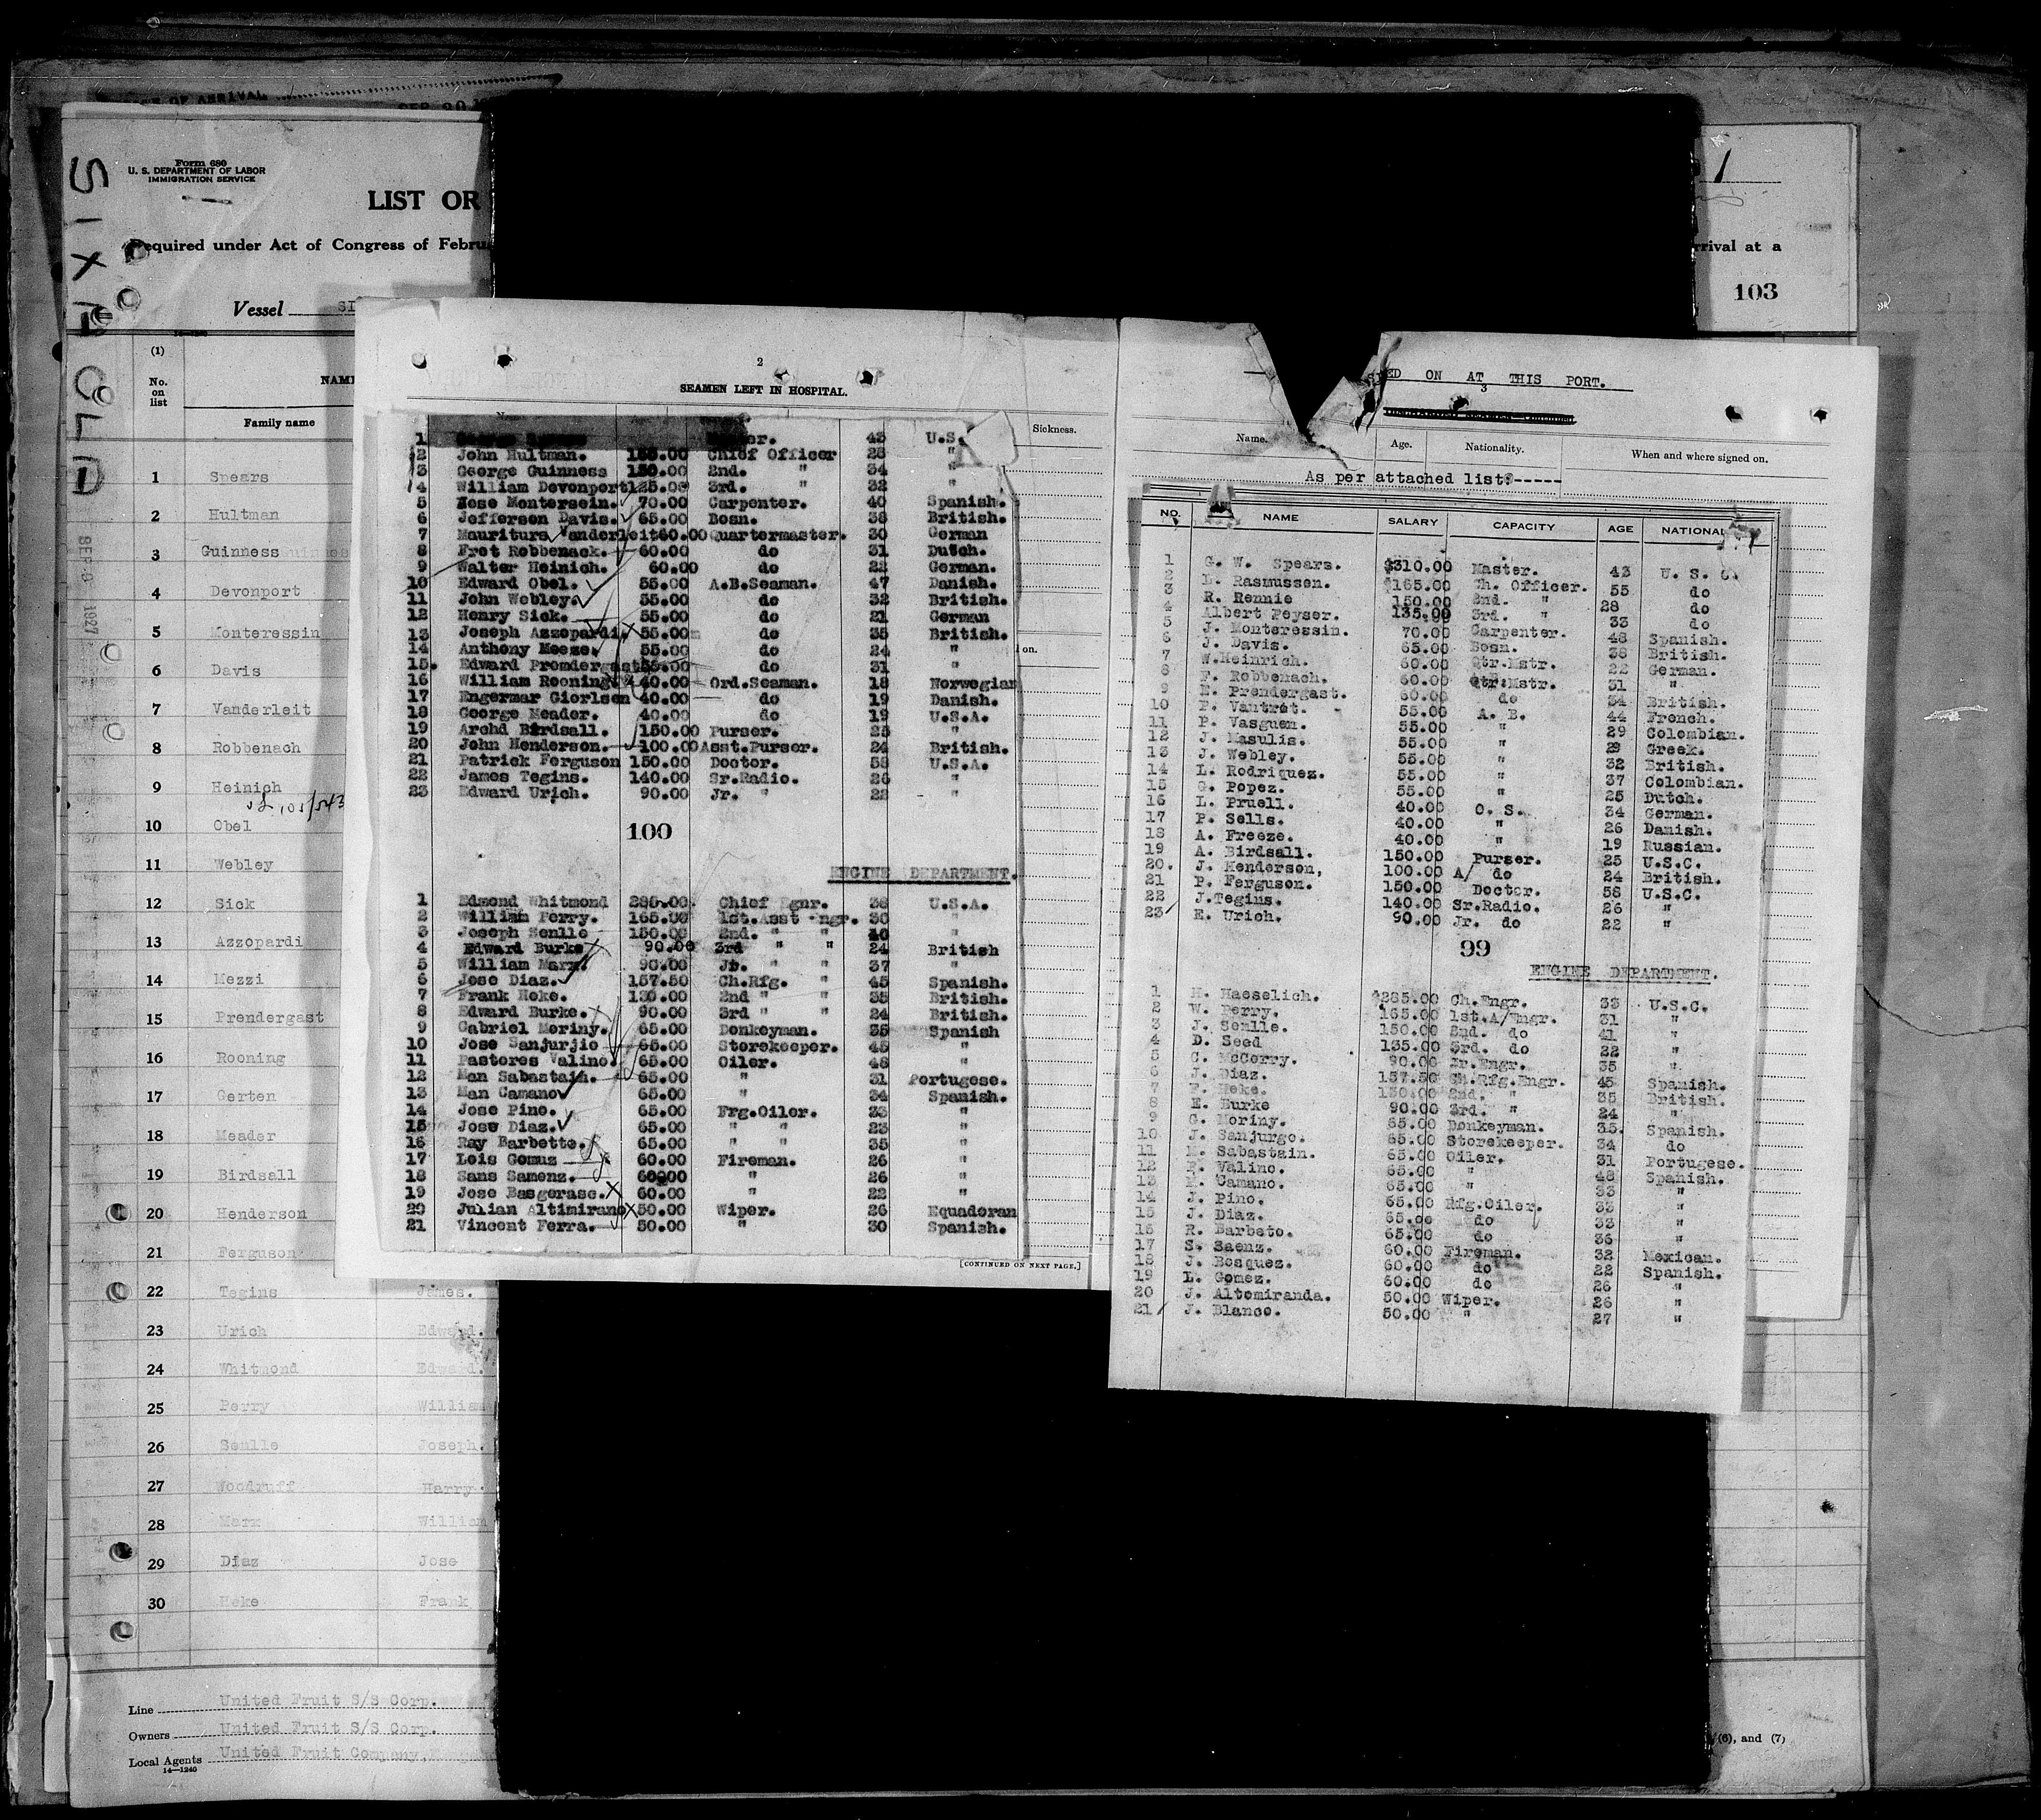 Form 680
U. S. DEPARTMENT OF LABOR
IMMIGRATION SERVICE
LIST OR
Required under Act of Congress of Febru
Vessel SI
SIXAOLA
SEP 9 1927
(1)
No. on list
NAME
Family name
1 Spears
2 Hultman
3 Guinness
4 Devonport
5 Monteressin
6 Davis
7 Vanderleit
8 Robbenach
9 Heinich
10 Obel
11 Webley
12 Sick
13 Azzopardi
14 Mezzi
15 Prendergast
16 Rooning
17 Gerten
18 Meader
19 Birdsall
20 Henderson
21 Ferguson
22 Tegins James.
23 Urich Edward.
24 Whitmond Edward.
25 Perry William
26 Senlle Joseph.
27 Woodruff Harry
28 Marx William
29 Diaz Jose
30 Heke Frank
Line United Fruit S/S Corp.
Owners United Fruit S/S Corp.
Local Agents United Fruit Company,
14—1240
1
rrival at a
103
(6), and (7)
2
SEAMEN LEFT IN HOSPITAL.
Sickness.
1 43 U.S.
2 John Hultman. Chief Officer 28 "
3 George Guinness 150.00 2nd. " 34 "
4 William Devonport 125.00 3rd. " 32 "
5 Jose Montersein. 70.00 Carpenter. 40 Spanish.
6 Jefferson Davis. 65.00 Bosn. 38 British.
7 Mauriturs Vanderleit 60.00 Quartermaster. 30 German
8 Fret Robbenack. 60.00 do 31 Dutch.
9 Walter Heinich. 60.00 do 22 German.
10 Edward Obel. 55.00 A.B.Seaman. 47 Danish.
11 John Webley. 55.00 do 32 British.
12 Henry Sick. 55.00 do 21 German
13 Joseph Azzopardi. 55.00 do 35 British.
14 Anthony Meeze. 55.00 do 24 "
15. Edward Promdergast 55.00 do 31 "
16 William Rooning 40.00 Ord.Seaman. 18 Norwegian
17 Engermar Giorlsen 40.00 do 19 Danish.
18 George Meader. 40.00 do 19 U.S.A.
19 Archd Birdsall. 150.00 Purser. 25 "
20 John Henderson. 100.00 Asst.Purser. 24 British.
21 Patrick Ferguson 150.00 Doctor. 58 U.S.A.
22 James Tegins. 140.00 Sr.Radio. 26 "
23 Edward Urich. 90.00 Jr. " 22 "
100
ENGINE DEPARTMENT.
1 Edmond Whitmond 285.00 Chief Egnr. 38 U.S.A.
2 William Perry. 165.00 1st.Asst ngr. 30 "
3 Joseph Senlle 150.00 2nd. " " 40 "
4 Edward Burke 90.00 3rd " " 24 British
5 William Marx. 90.00 Jr. " " 37 "
6 Jose Diaz. 157.50 Ch.Rfg. " 45 Spanish.
7 Frank Heke. 130.00 2nd " " 35 British.
8 Edward Burke. 90.00 3rd " " 24 British.
9 Gabriel Moriny. 65.00 Donkeyman. 35 Spanish
10 Jose Sanjurjio 65.00 Storekeeper. 45 "
11 Pastores Valino. 65.00 Oiler. 48 "
12 Man Sabastain. 65.00 " 31 Portugese.
13 Man Camano 65.00 " 34 Spanish.
14 Jose Pino. 65.00 Frg.Oiler. 33 "
15 Jose Diaz. 65.00 " " 23 "
16 Ray Barbette. 65.00 " " 35 "
17 Lois Gomuz 60.00 Fireman. 26 "
18 Sans Samenz. 60.00 " 26 "
19 Jose Basgerasc. 60.00 " 22 "
20 Julian Altimirano 50.00 Wiper. 26 Equadoran
21 Vincent Ferra. 50.00 " 30 Spanish.
[CONTINUED ON NEXT PAGE.]
ED ON AT THIS PORT.
3
Name. Age. Nationality. When and where signed on.
As per attached list:-----
NO. NAME SALARY CAPACITY AGE NATIONAL
1 G. W. Spears. $310.00 Master. 43 U. S. C.
2 L. Rasmussen. $165.00 Ch. Officer. 55 do
3 R. Rennie 150.00 2nd. " 28 do
4 Albert Peyser. 135.00 3rd. " 33 do
5 J. Monteressin. 70.00 Carpenter. 48 Spanish.
6 J. Davis. 65.00 Bosn. 38 British.
7 W.Heinrich. 60.00 Qtr.Mstr. 22 German.
8 F. Robbenach. 60.00 Qtr.Mstr. 31 "
9 E. Prendergast. 60.00 do 34 British.
10 P. Vantrat. 55.00 A. B. 44 French.
11 P. Vasguen. 55.00 " 29 Colombian.
12 J. Masulis. 55.00 " 29 Greek.
13 J. Webley. 55.00 " 32 British.
14 L. Rodriquez. 55.00 " 37 Colombian.
15 G. Popez. 55.00 " 25 Dutch.
16 L. Pruell. 40.00 O. S. 34 German.
17 P. Sells. 40.00 " 26 Danish.
18 A. Freeze. 40.00 " 19 Russian.
19 A. Birdsall. 150.00 Purser. 25 U.S.C.
20. J. Henderson, 100.00 A/ do 24 British.
21 P. Ferguson. 150.00 Doctor. 58 U.S.C.
22 J.Tegins. 140.00 Sr.Radio. 26 "
23 E. Urich. 90.00 Jr. do 22 "
99
ENGINE DEPARTMENT.
1 H. Haeselich. $285.00 Ch.Engr. 33 U.S.C.
2 W. Perry. 165.00 1st.A/Engr. 31 "
3 J. Senlle. 150.00 2nd. do 41 "
4 D. Seed 135.00 3rd. do 22 "
5 C. McCerry. 90.00 Jr.Engr. 35 "
6 J. Diaz. 157.50 Ch.Rfg.Engr. 45 Spanish.
7 F. Heke. 130.00 2nd. " 35 British.
8 E. Burke 90.00 3rd. " 24 "
9 G. Moriny. 65.00 Donkeyman. 35. Spanish.
10 J. Sanjurgo. 65.00 Storekeeper. 34 do
11 M. Sabastain. 65.00 Oiler. 31 Portugese.
12 P. Valino. 65.00 " 48 Spanish.
13 M. Camano. 65.00 " 33 "
14 J. Pino. 65.00 Rfg.Oiler. 33 "
15 J. Diaz. 65.00 do 33 "
16 R. Barbeto. 65.00 do 36 "
17 S. Saenz. 60.00 Fireman. 32 Mexican.
18 J. Bosquez. 60.00 do 22 Spanish.
19 L. Gomez. 60.00 do 26 "
20 J. Altomiranda. 50.00 Wiper. 26 "
21 J. Blanco. 50.00 " 27 "